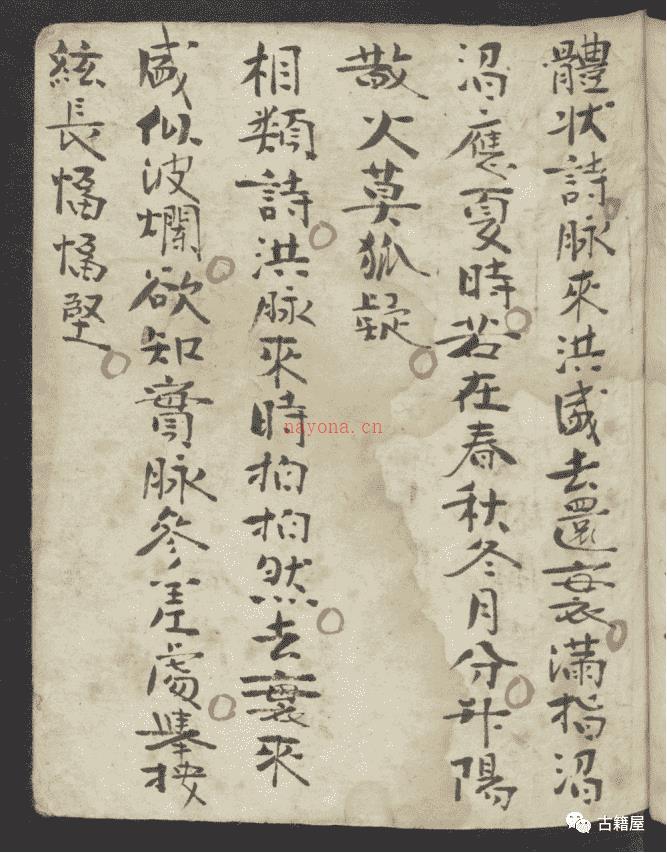 體状詩脉來洪盛去還衰滿指滔
滔應夏時若在春秋冬月分升陽
散火莫狐疑
相類詩洪脉來時拍拍然去衰來
盛似波瀾欲知實脉參差處舉按
絃長愊愊堅
nayona.cn
古籍屋